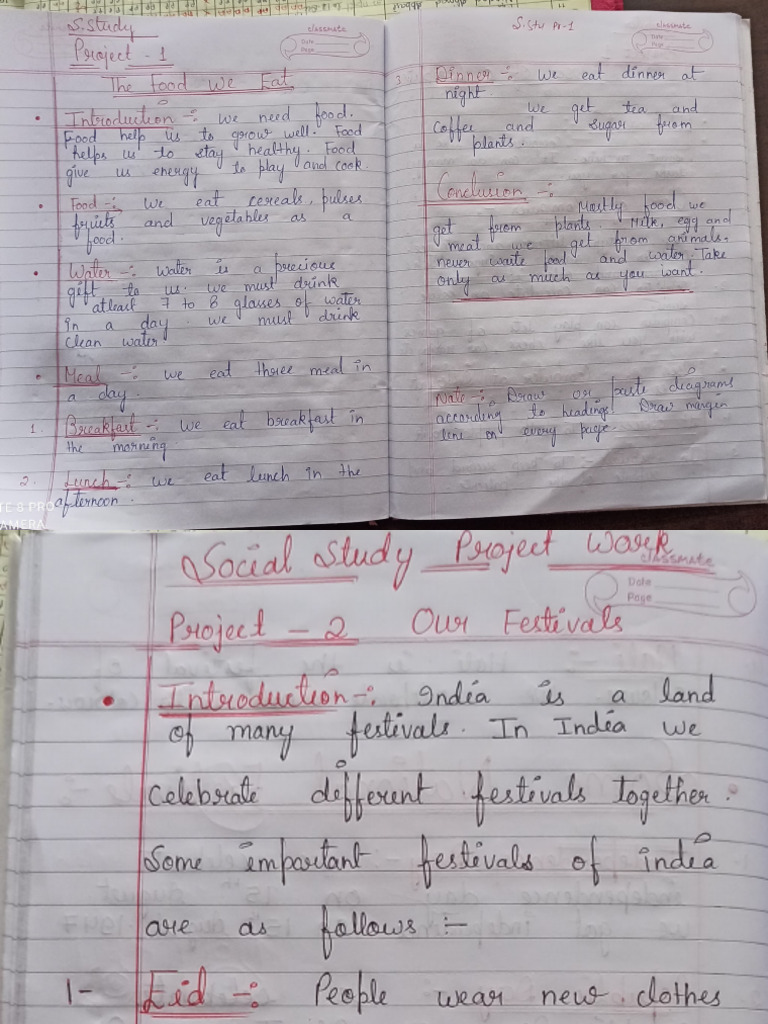 S. Study
Project - 1
classmate
Date
Page
The Food We Eat
• Introduction -: We need food.
Food help us to grow well. Food
helps us to stay healthy. Food
give us energy to play and cook.
• Food -: We eat cereals, pulses
fruits and vegetables as a
food.
• Water -: Water is a precious
gift to us. we must drink
atleast 7 to 8 glasses of water
in a day. we must drink
clean water
• Meal -: we eat three meal in
a day.
1. Breakfast -: we eat breakfast in
the morning.
2. Lunch -: we eat lunch in the
afternoon.
S. Stu Pr-1
classmate
Date
Page
3 Dinner -: We eat dinner at
night.
We get tea and
coffee and sugar from
plants.
Conclusion -:
Mostly food we
get from plants. Milk, egg and
meat we get from animals.
never waste food and water. Take
only as much as you want.
Note -: Draw or paste diagrams
according to headings. Draw margin
line on every page.
AMERA
Social Study Project Work
classmate
Date
Page
Project - 2 Our Festivals
• Introduction -: India is a land
of many festivals. In India we
celebrate defferent festivals together.
Some important festivals of india
are as follows :-
1- Eid -: People wear new clothes